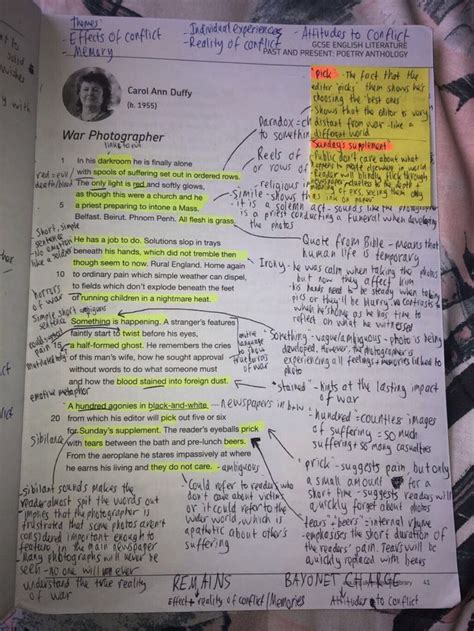 Themes
- Effects of conflict
- Memory
- Individual experiences
- Reality of conflict
- Attitudes to Conflict
GCSE ENGLISH LITERATURE
PAST AND PRESENT: POETRY ANTHOLOGY
Carol Ann Duffy
(b. 1955)
War Photographer
1 In his darkroom he is finally alone
with spools of suffering set out in ordered rows.
The only light is red and softly glows,
as though this were a church and he
5 a priest preparing to intone a Mass.
Belfast. Beirut. Phnom Penh. All flesh is grass.
He has a job to do. Solutions slop in trays
beneath his hands, which did not tremble then
though seem to now. Rural England. Home again
10 to ordinary pain which simple weather can dispel,
to fields which don't explode beneath the feet
of running children in a nightmare heat.
Something is happening. A stranger's features
faintly start to twist before his eyes,
15 a half-formed ghost. He remembers the cries
of this man's wife, how he sought approval
without words to do what someone must
and how the blood stained into foreign dust.
A hundred agonies in black-and-white
20 from which his editor will pick out five or six
for Sunday's supplement. The reader's eyeballs prick
with tears between the bath and pre-lunch beers.
From the aeroplane he stares impassively at where
he earns his living and they do not care.
- ambiguous
"pick" - The fact that the
editor 'picks' them shows he's
choosing the best ones
- Shows that the editor is very
distant from war - like a
different world
Sunday's supplement
- Public don't care about what
red = evil
death/blood
Quote from Bible - means that
human life is temporary
Irony - he was calm when taking the photos
but now they affect him
- his hands need to be steady when taking
pics or they'll be blurry
horrors
of war
something - vague/ambiguous - photo is being
developed. However, the photographer is
experiencing all feelings + memories linked to
photo
"stained" - hints at the lasting impact
of war
emotive metaphor
newspapers in b+w
hundred = countless images
of suffering - so much
suffering + so many casualties
'prick' - suggests pain, but only
a small amount + for a
short time - suggests readers will
quickly forget about photos
tears + beers - internal rhyme
- emphasises the short duration of
the readers' pain. Tears will be
quickly replaced with beers
Sibilance
- sibilant sounds makes the
reader almost spit the words out
- implies that the photographer is
frustrated that some photos aren't
considered important enough to
feature in the main newspaper
- many photographs will never be
seen - no one will ever
understand the true reality
of war
Could refer to readers who
don't care about victims
or it could refer to the
wider world, which is
apathetic about other's
suffering
REMAINS
Effect + reality of conflict/Memories
BAYONET CHARGE
Attitudes to conflict
41